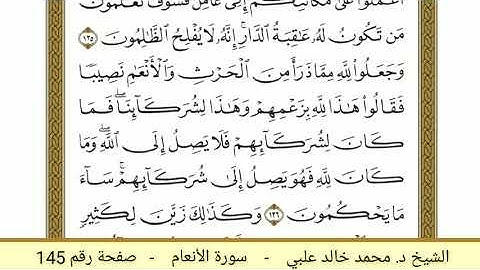 ٱعۡمَلُوا۟ عَلَىٰ مَكَانَتِكُمۡ إِنِّي عَامِلٞۖ فَسَوۡفَ تَعۡلَمُونَ
مَن تَكُونُ لَهُۥ عَٰقِبَةُ ٱلدَّارِۚ إِنَّهُۥ لَا يُفۡلِحُ ٱلظَّٰلِمُونَ ١٣٥
وَجَعَلُوا۟ لِلَّهِ مِمَّا ذَرَأَ مِنَ ٱلۡحَرۡثِ وَٱلۡأَنۡعَٰمِ نَصِيبٗا
فَقَالُوا۟ هَٰذَا لِلَّهِ بِزَعۡمِهِمۡ وَهَٰذَا لِشُرَكَآئِنَاۖ فَمَا
كَانَ لِشُرَكَآئِهِمۡ فَلَا يَصِلُ إِلَى ٱللَّهِۖ وَمَا
كَانَ لِلَّهِ فَهُوَ يَصِلُ إِلَىٰ شُرَكَآئِهِمۡۗ سَآءَ
مَا يَحۡكُمُونَ ١٣٦ وَكَذَٰلِكَ زَيَّنَ لِكَثِيرٖ
الشيخ د. محمد خالد علبي - سورة الأنعام - صفحة رقم 145